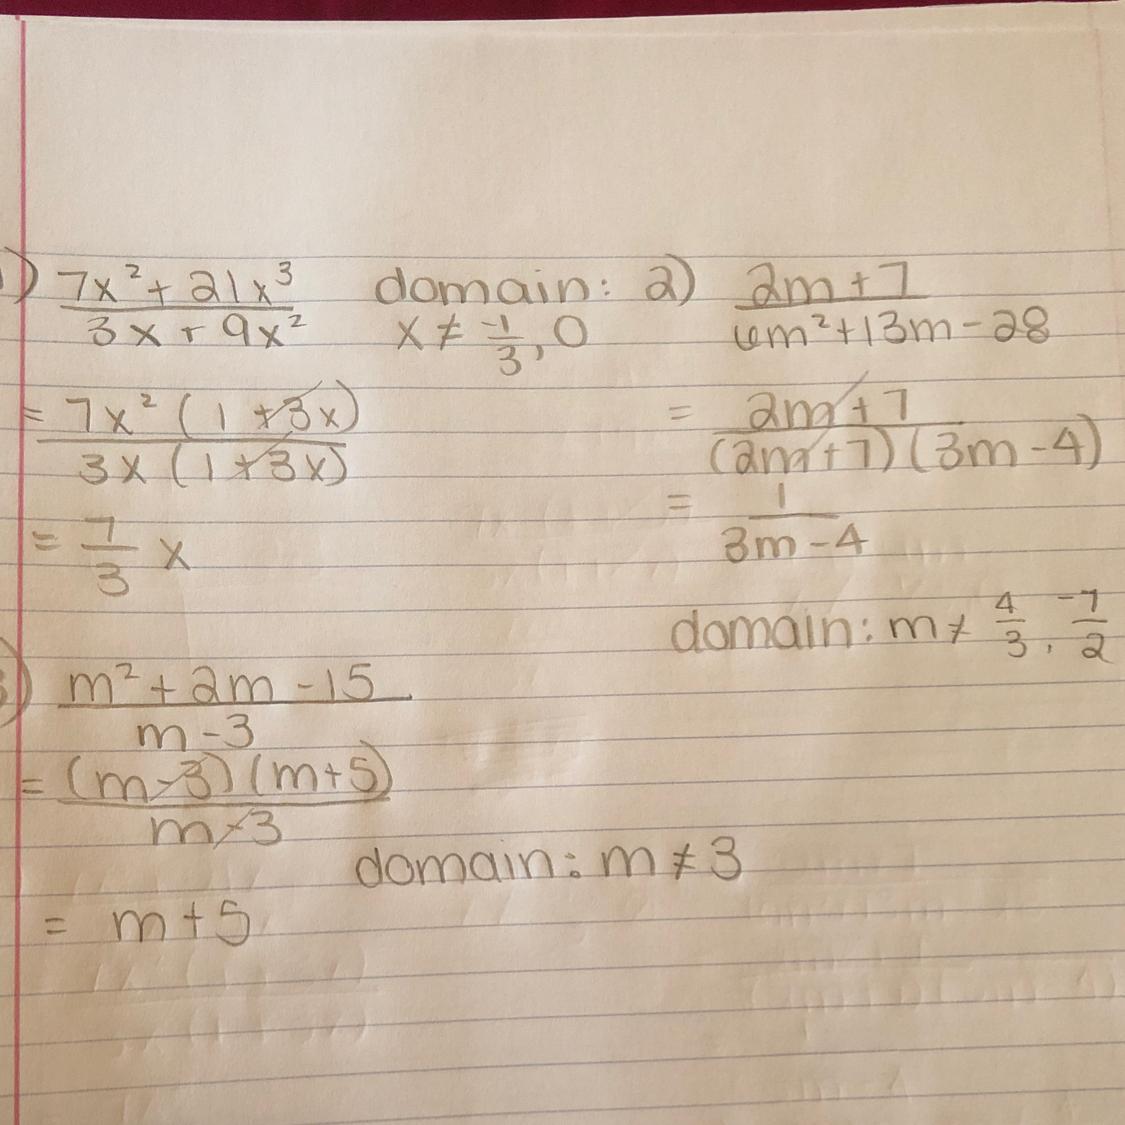 1) (7x² + 21x³)/(3x + 9x²)
domain:
x ≠ -1/3, 0
= 7x² (1 + 3x)/3x (1 + 3x)
= 7/3 x
2) (2m + 7)/(6m² + 13m - 28)
= (2m + 7)/(2m + 7)(3m - 4)
= 1/(3m - 4)
domain: m ≠ 4/3, -7/2
3) (m² + 2m - 15)/(m - 3)
= (m - 3)(m + 5)/(m - 3)
domain: m ≠ 3
= m + 5